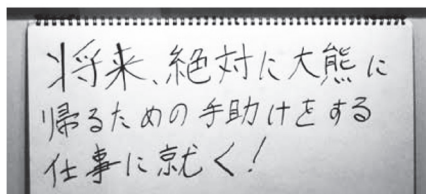 将来、絶対に大熊に
帰るための手助けをする
仕事に就く!